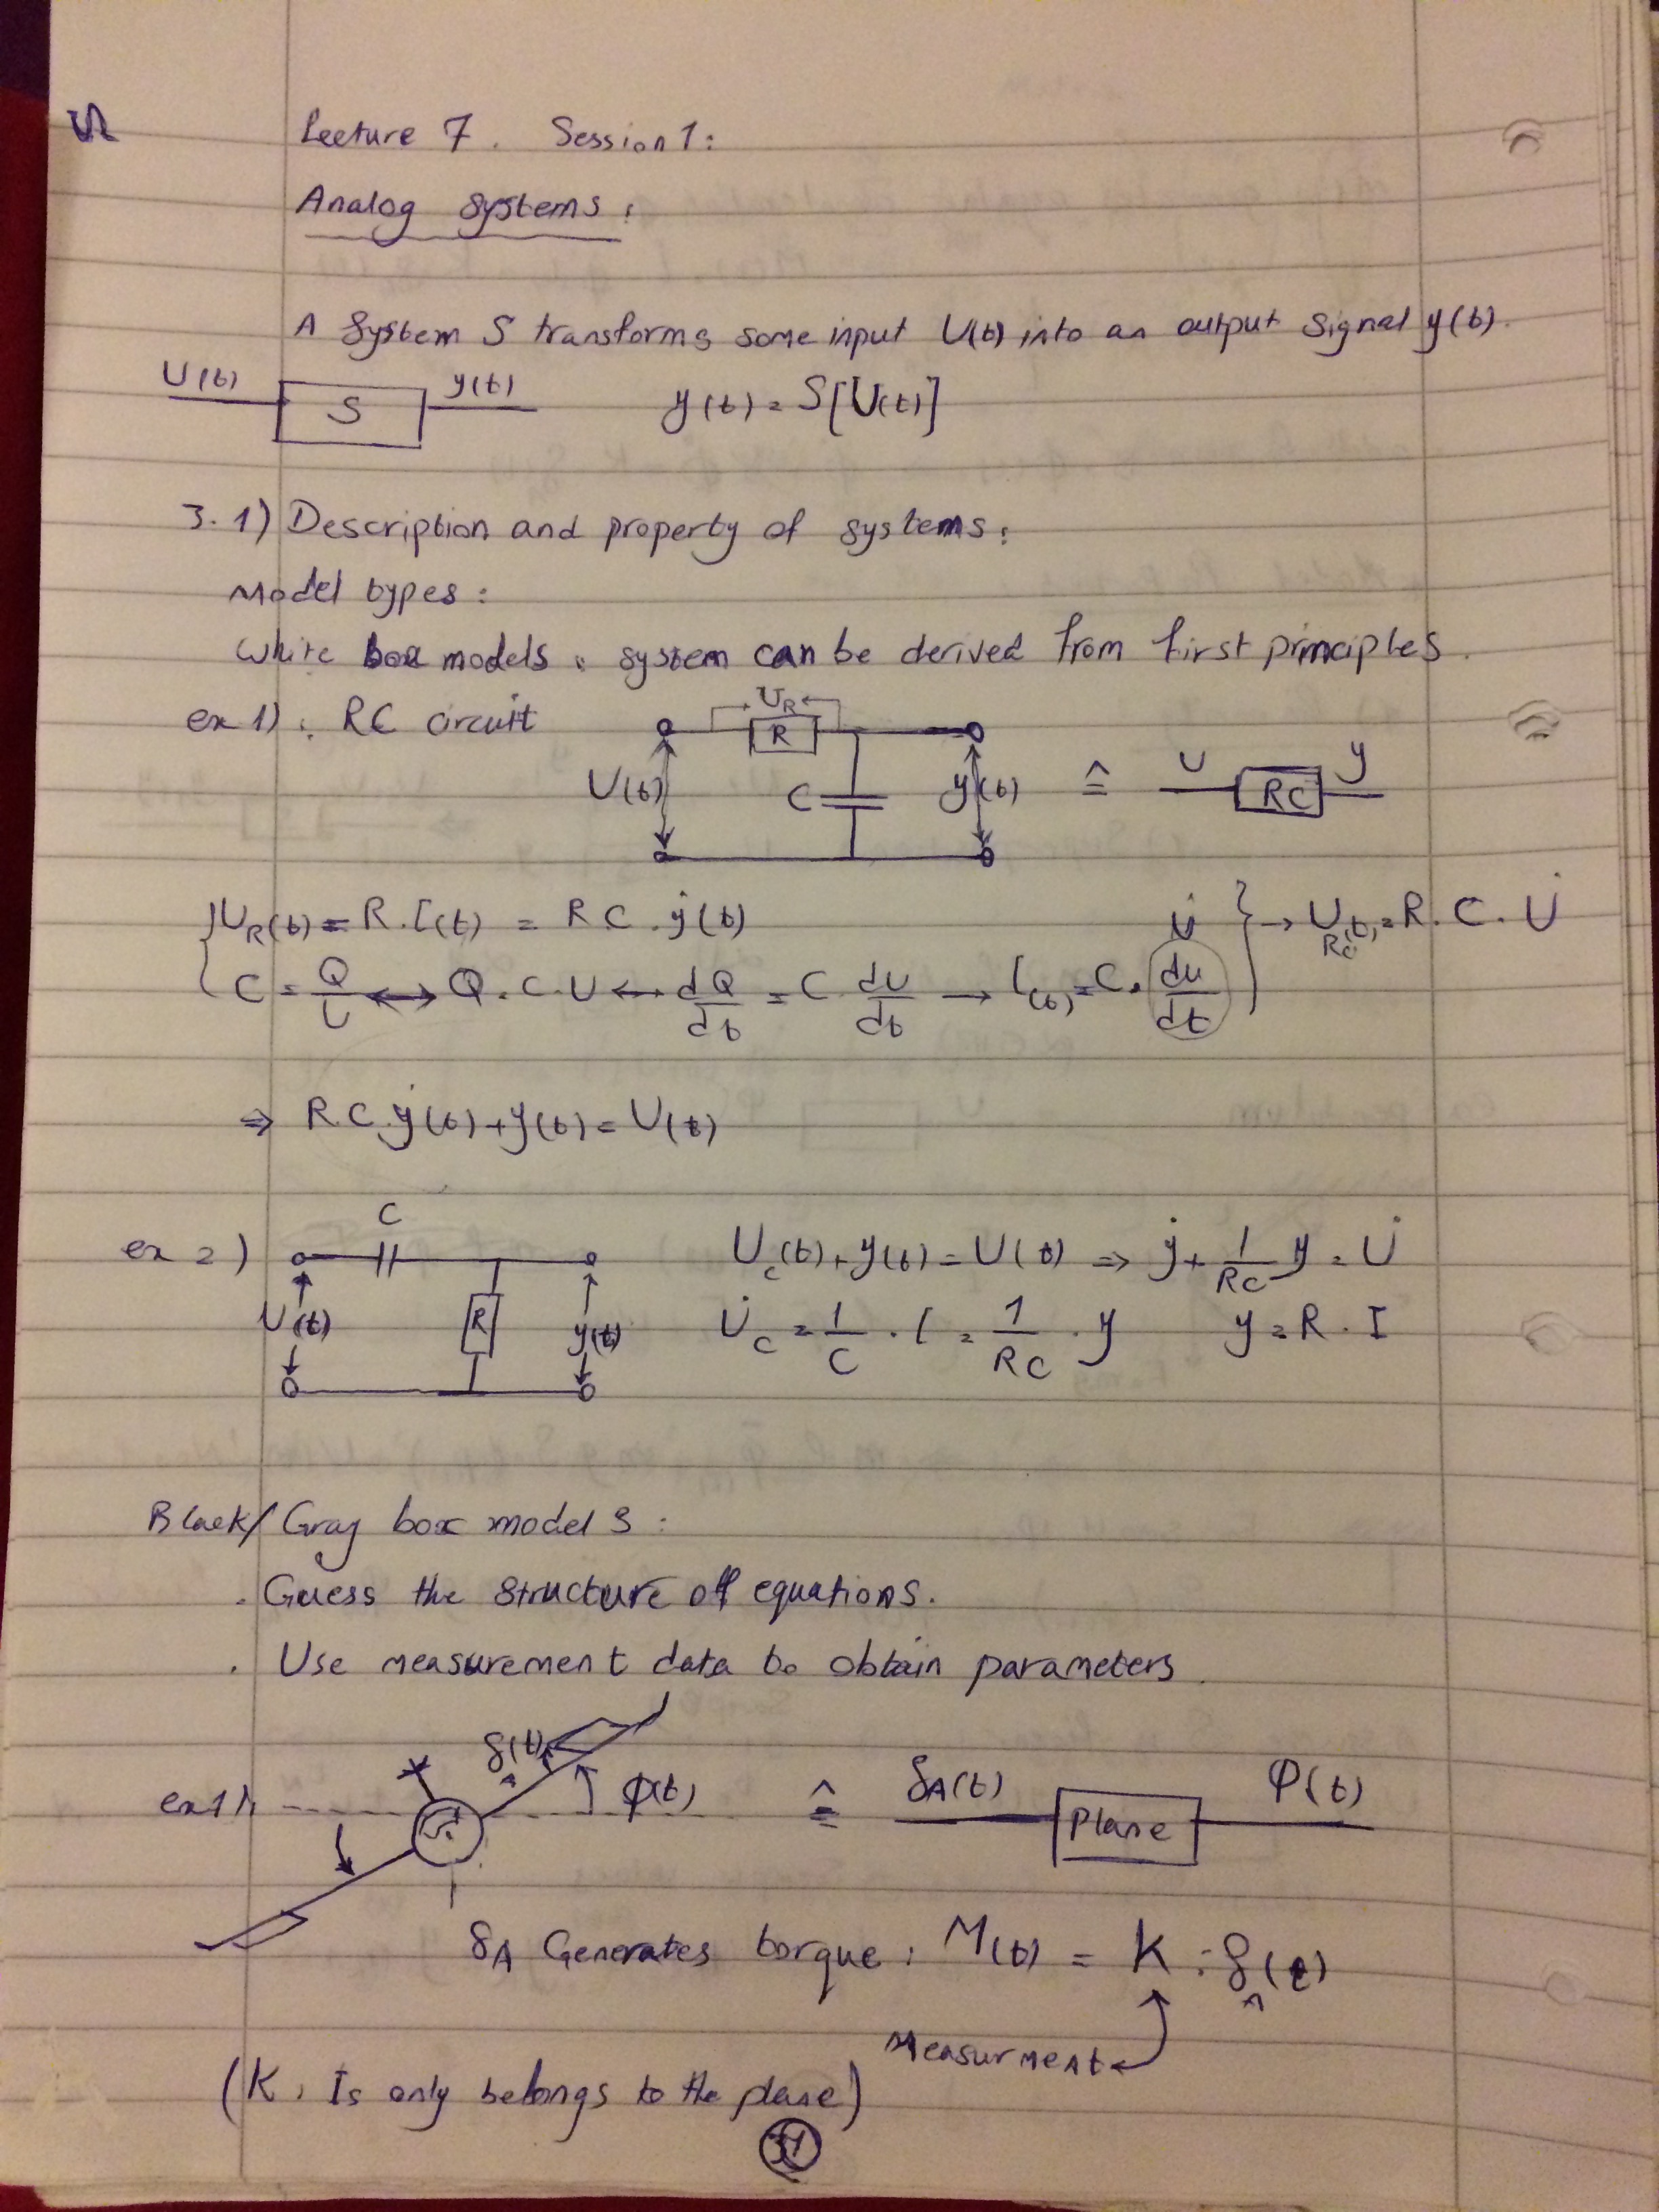 Lecture 7. Session 1:
Analog systems:
A system S transforms some input U(t) into an output signal y(t).
U(t) S y(t) y(t) = S[U(t)]
3.1) Description and property of systems:
Model types:
White box models: system can be derived from first principles.
ex 1): RC circuit
U_R
R
U(t) C y(t) ≙ U RC y
{ U_R(t) = R.I(t) = RC.ẏ(t) U̇ } → U_RC(t) = R.C.U̇
C = Q/U ↔ Q = C.U ↔ dQ/dt = C dU/dt → I(t) = C.du/dt
⇒ R.C.ẏ(t) + y(t) = U(t)
C
ex 2) U_c(t) + y(t) = U(t) ⇒ ẏ + 1/RC y = U̇
U(t) R y(t) U̇_C = 1/C . I = 1/RC . y y = R.I
Black/Gray box models:
. Guess the structure of equations.
. Use measurement data to obtain parameters.
ex1): δ_A(t) φ(t) ≙ δA(t) Plane φ(t)
δA Generates torque: M(t) = K . δ_A(t)
Measurment
(K: Is only belongs to the plane)
31